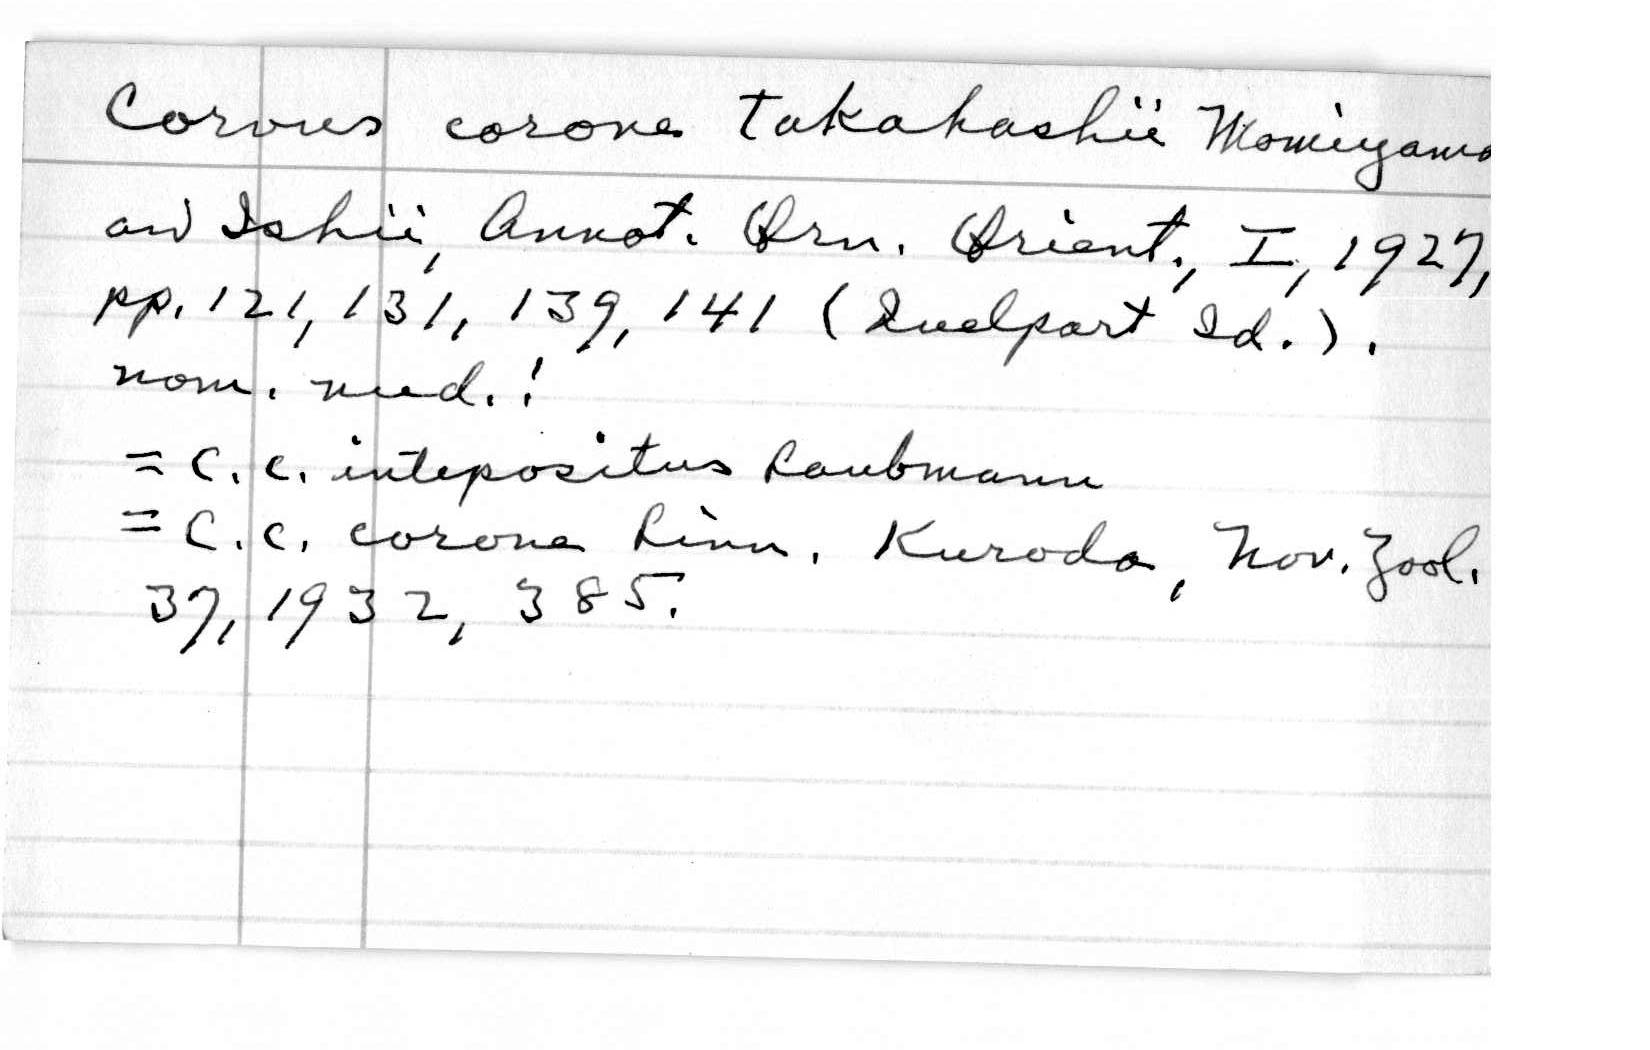 Corvus corone takahashii Momiyama
and Ishii, Annot. Orn. Orient., I, 1927,
pp. 121, 131, 139, 141 (Quelpart Id.).
nom. nud.!
= C. c. intepositus Laubmann
= C. c. corone Linn. Kuroda, Nov. Zool.
37, 1932, 385.